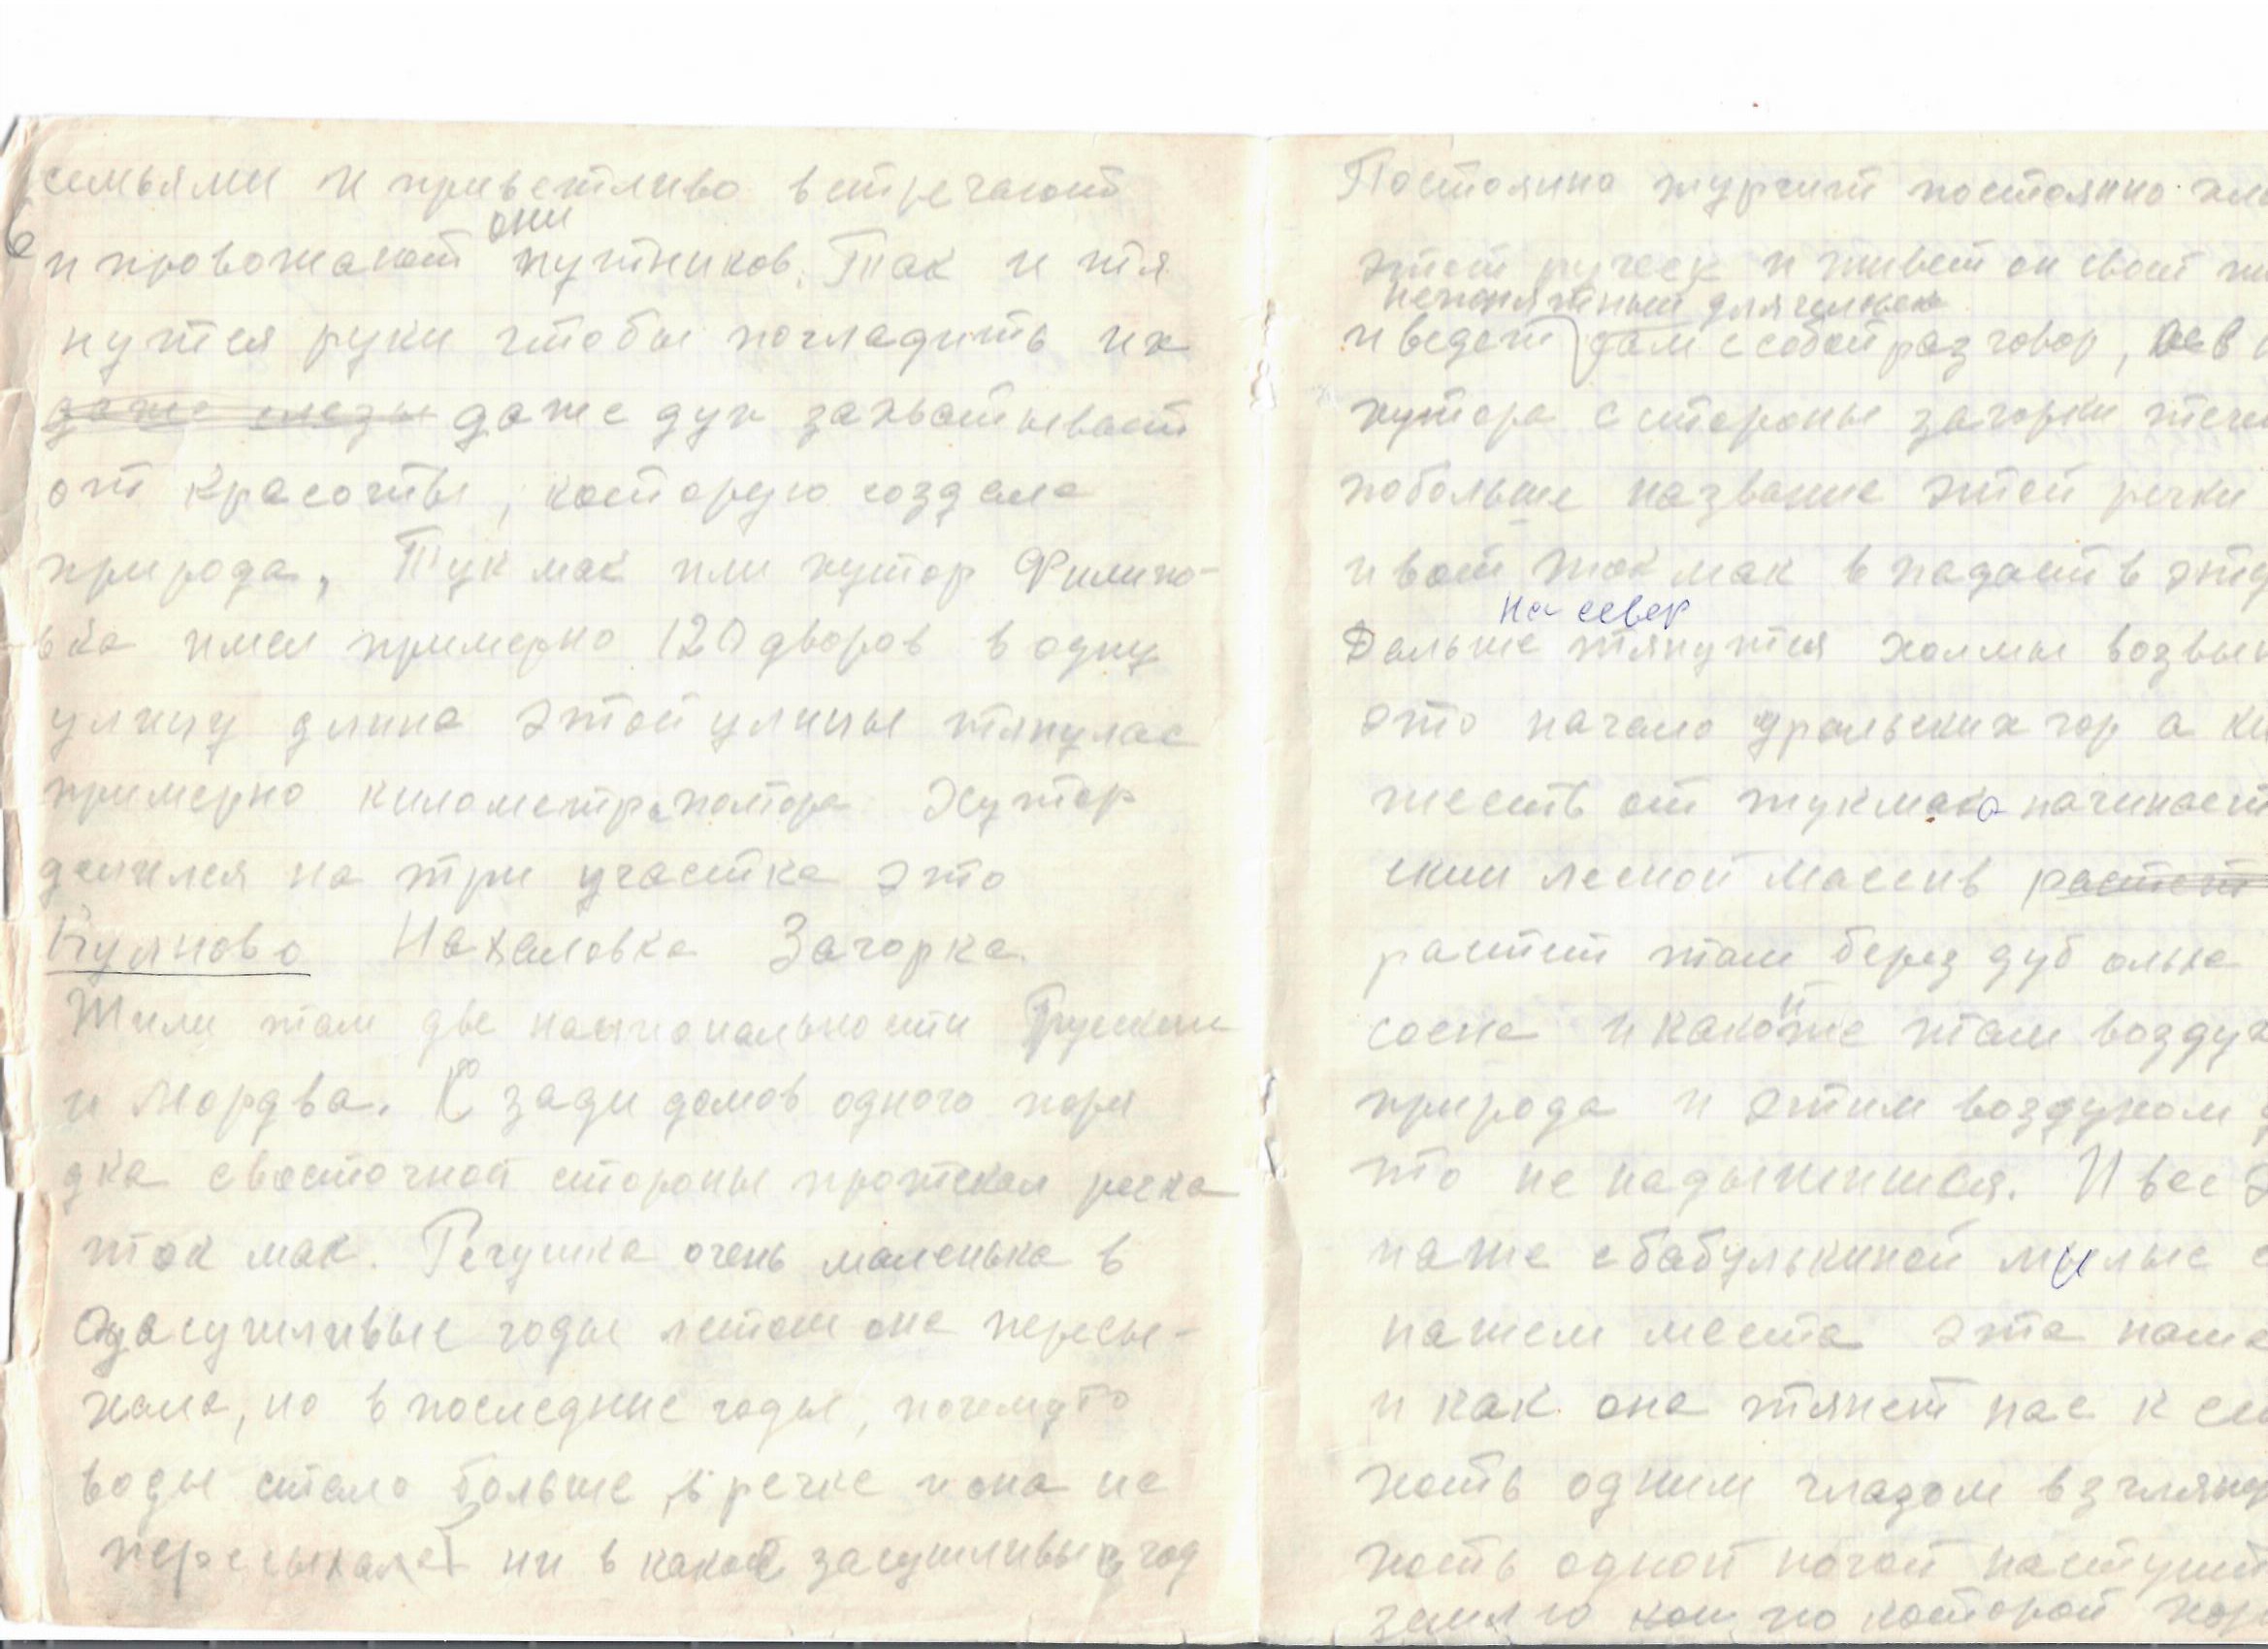 семьями и приветливо встречают
6
они
и провожают путников. Так и тя
нутся руки чтобы погладить их
даже слезы даже дух захватывает
от красоты, которую создала
природа, Тукмак или хутор Филипо-
вка имел примерно 120 дворов в одну
улицу длина этой улицы тянулас
примерно километра полтора Хутор
делился на три участка это
Куяново Нахаловка Загорка
Жили там две национальности Русские
и Мордва. С зади домов одного поря
дка с восточной стороны протекал речка
ток мак. Речушка очень маленька в
засушливые годы летом она пересы-
хала, но в последние годы, почемуто
воды стало больше в речке и она не
пересыхает ни в какой засушливый год
Постоянно журчит постоянно
этот ручеек и живет он своей
непонятный для человека
и ведет сам с собой разговор, в
хутора с стороны загорки
побольше название этой речки
и вот ток мак впадает в
на север
Дальше тянутся холмы
это начало уральских гор а
жеств от тукмака
ский лесной массив растет
растет там берез дуб ольха
сосна и какой же там воздух
природа и этим воздухом
то не надышишся. И все
наше с бабулькиной милые
нашем места эта
и как она тянет нас к
хоть одним глазом
хоть одной ногой
землю по которой